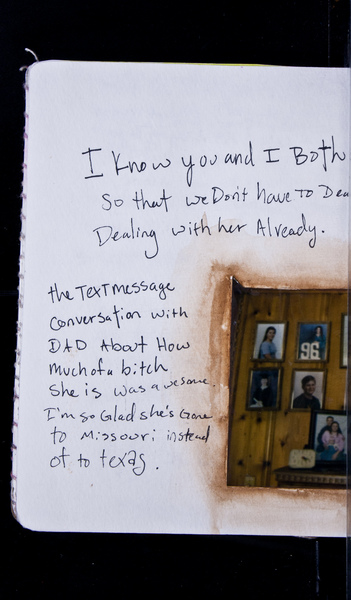 I Know you and I Both
So that we Don't have to Dea
Dealing with her Already.
the Text message
conversation with
DAD About How
much of a bitch
She is was awesome.
I'm so Glad she's Gone
to Missouri instead
of to texas.
96